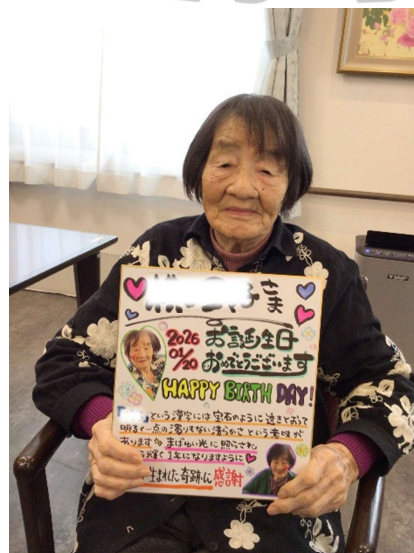 さま
2026
01/20
お誕生日
おめでとうございます
HAPPY BIRTH DAY!
という漢字には宝石のように透きとおって
明るく一点の濁りもない清らかさという意味が
あります まばゆい光に照らされ
輝く1年になりますように
生まれた奇跡に感謝